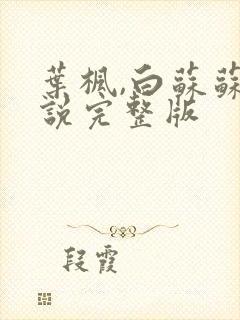 葉楓,白蘇蘇
說完整版
段霞